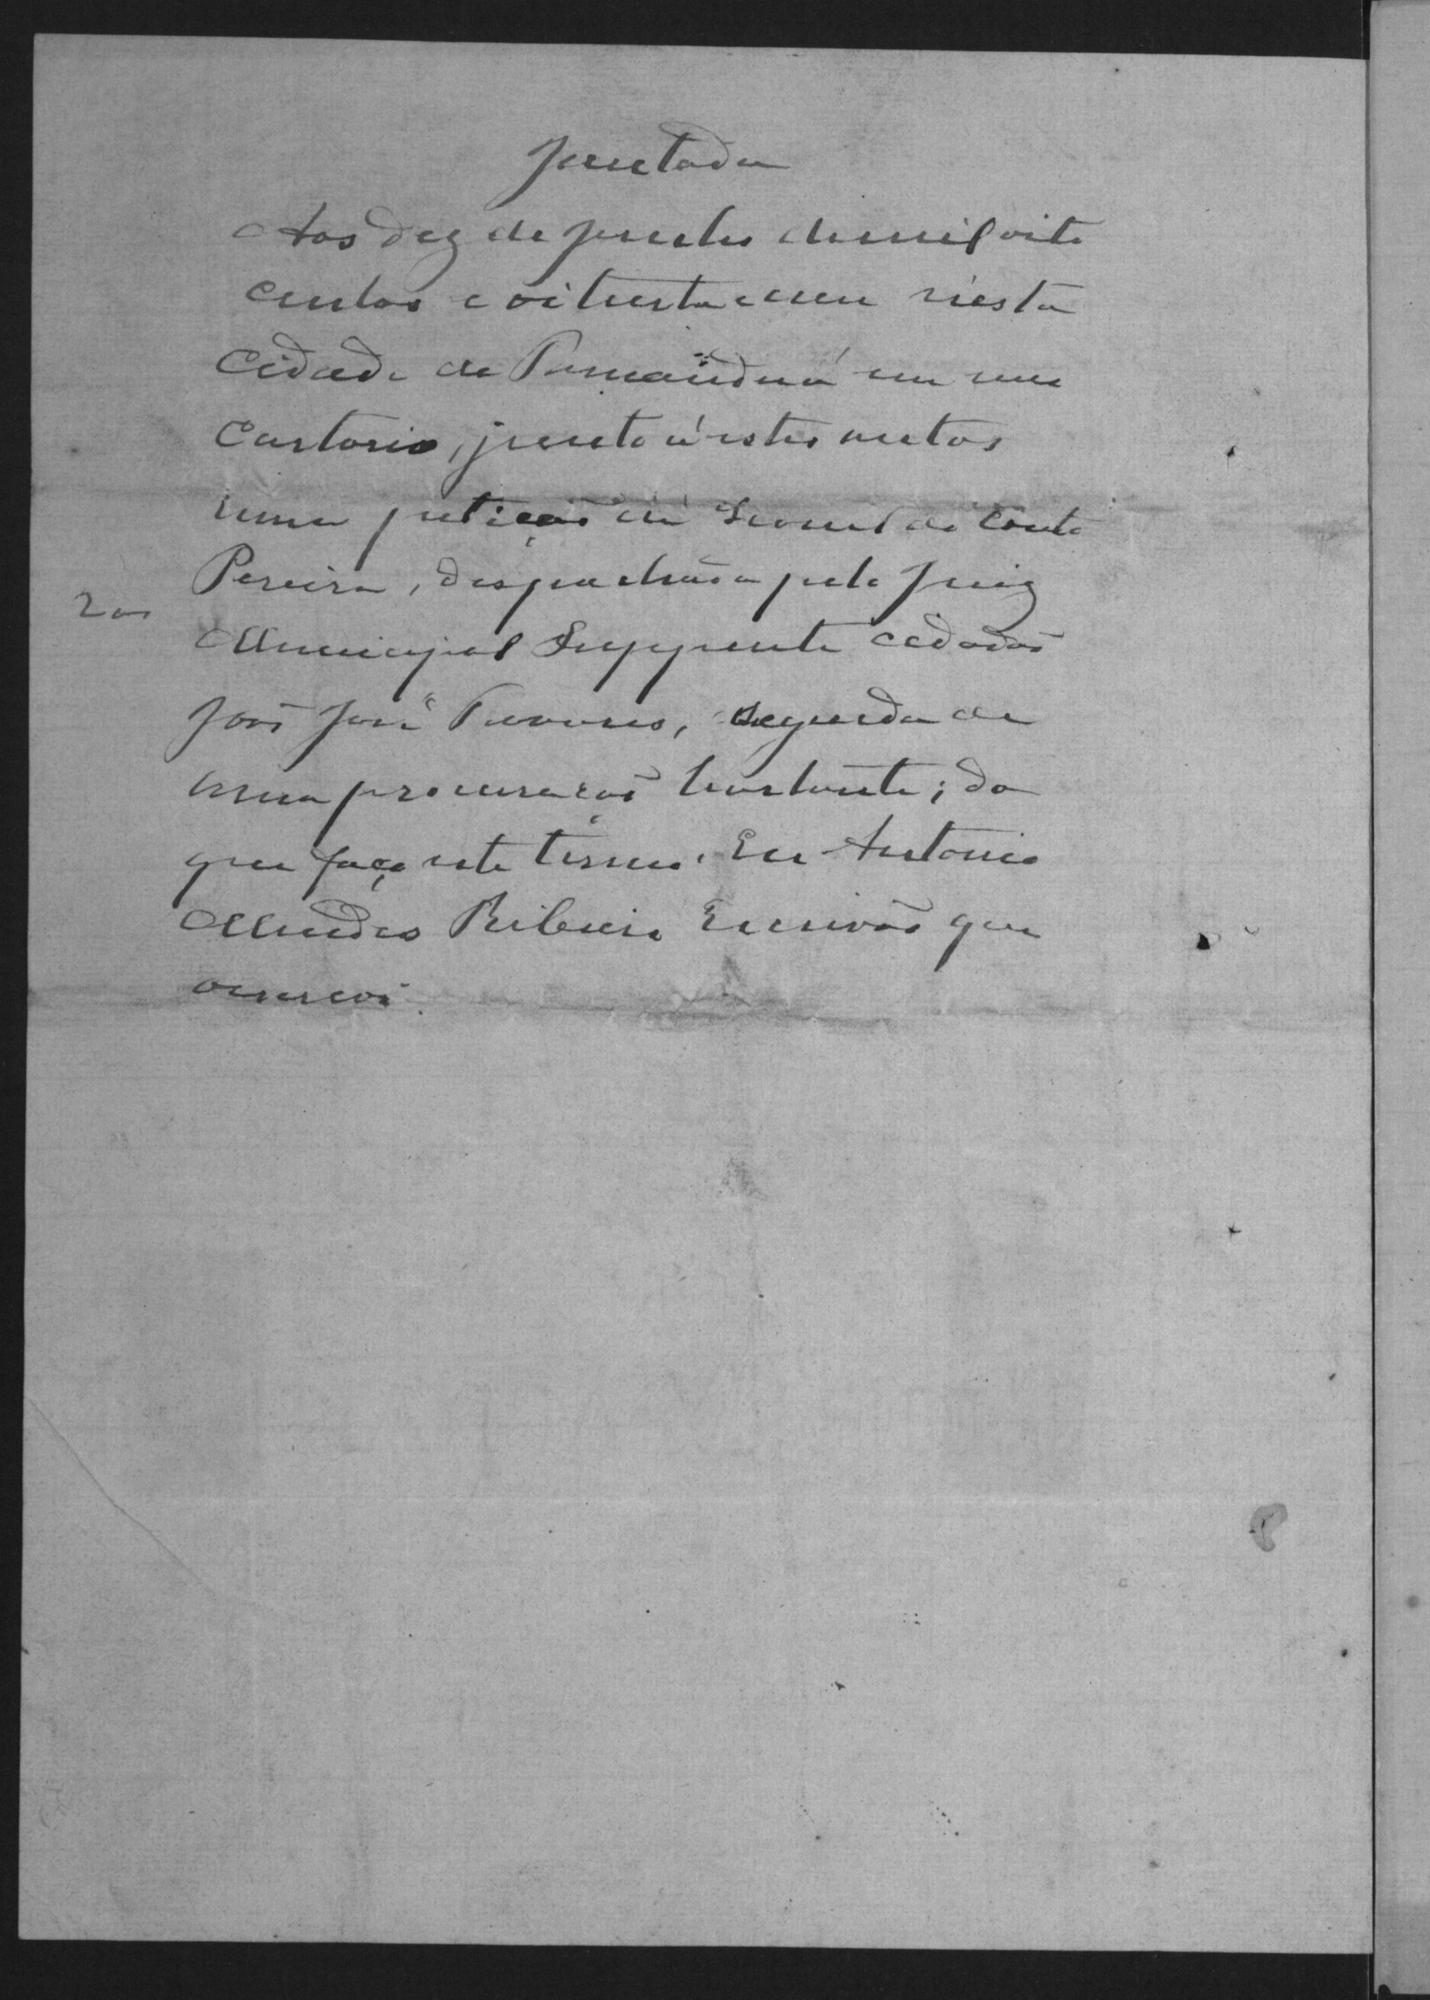 Juntada
Aos dez de Junho de mil oito
centos e oitenta e um n'esta
Cidade de em meu
Cartorio, junto á estes autos
uma petição de Leonel do Couto
Pereira, despachada pelo Juiz
200
Municipal Supplente cidadão
João José Tavares, seguida de
uma procuração bastante; do
que faço este termo. Eu Antonio
Mendes Ribeiro Escrivão que
o escrevi.